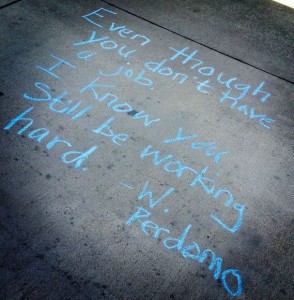 Even though
you don't have
a job.
I know you
still be working
hard.
-W.
Perdomo